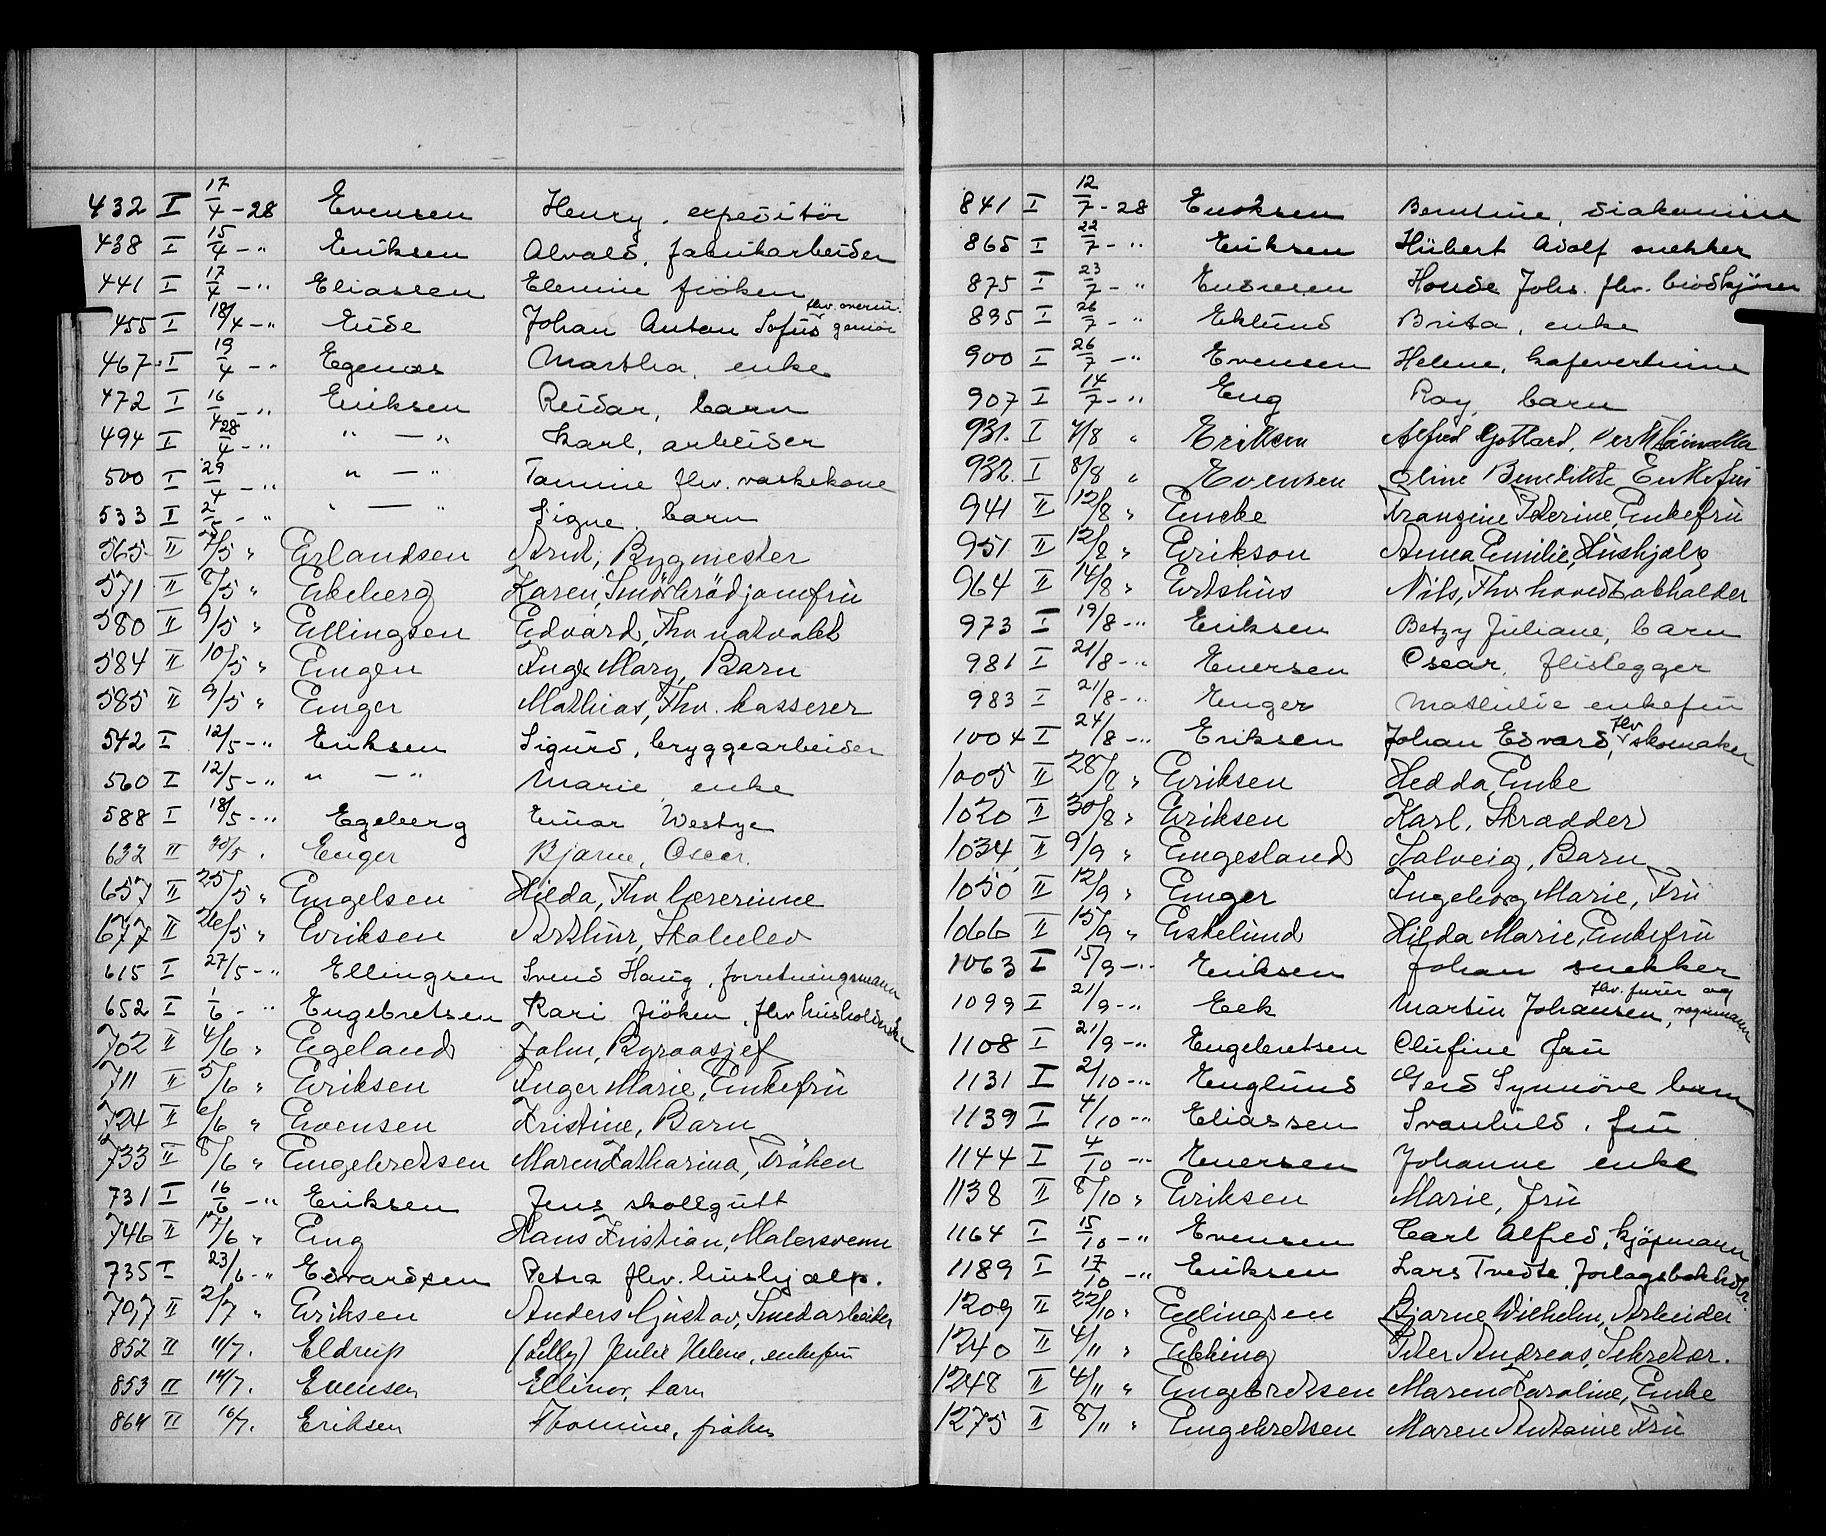 432 I 17/4 - 28 Evensen Henry, expeditör
438 I 15/4 - " Eriksen Alvald, fabrikarbeider
441 I 17/4 - " Eliassen Elenine fröken
455 I 18/4 - " Eide Johan Anton Sofus flv.
467 I 19/4 - " Egenæs Martha, enke
472 I 16/4 - " Eriksen Reidar, barn
494 I 28/4 - " " — " Karl, arbeider
500 I 29/4 - " " — " Tomine flv. vaskekone
533 I 2/5 - " " — " Signe, barn
565 II 7/5 " Erlandsen Arnt, Bygmester
571 II 8/5 " Ekeberg Karen, Smörbrödjomfru
580 II 9/5 " Ellingsen Edvard, Fhv natvakt
584 II 10/5 " Engen Inge Mary, Barn
585 II 9/5 " Enger Mathias, Fhv. kasserer
542 I 12/5 - " Eriksen Sigurd, bryggearbeider
560 I 12/5 - " " — " Marie, enke
588 I 18/5 - " Egeberg Einar Westye
632 II 20/5 . Enger Bjarne, Oscar.
657 II 25/5 " Engelsen Hilda, Fhv lærerinne
677 II 26/5 " Eriksen Arthur, Skoleelev
615 I 27/5 - " Ellingsen Svend Haug, forretningsmann
652 I 1/6 - " Engebretsen Kari fröken, flv husholderske
702 II 4/6 " Egeland John, Byraasjef
711 II 5/6 " Eriksen Inger Marie, Enkefru
724 II 6/6 " Evensen Kristine, Barn
733 II 8/6 " Engebretsen Maren Katharina, Fröken
731 I 16/6 - " Eriksen Jens skollgutt
746 II 17/6 " Eng Hans Kristian, Malersvenn
735 I 23/6 - " Edvardsen Petra flv. hushjælp.
797 II 2/7 " Eriksen Anders Gustav, Smedarbeider
852 II 11/7. Eldrup (Lilly) Julie Helene, enkefru
853 II 14/7. Evensen Ellinor, barn
864 II 16/7. Eriksen Thomine, frøken
841 I 12/7 - 28 Eriksen Berntine, diakonisse
865 I 22/7 - " Eriksen Hübert Adolf snekker
875 I 23/7 - " Endresen Johs. flv. brödkjörer
895 I 26/7 - " Eklund Brita, enke
900 I 26/7 - " Evensen Helene, kafevertinne
907 I 14/7 - " Eng Roy, barn
931. I 7/8 " Eriksen Alfred Gottard,
932. I 8/8 " Evensen Oline Benedikte Enkefru
941 II 12/8 " Encke Franzine Peterine, Enkefru
951 II 12/8 " Erikson Anna Emilie, Hushjælp
964 II 14/8 " Ertshus Nils, Fhv hovedbokholder
973 I 19/8 - " Eriksen Betzy Juliane, barn
981 I 21/8 - " Enersen Oscar, fliselegger
983 I 21/8 - " Enger Mathilde enkefru
1004 I 24/8 - " Eriksen Johan Edvard, flv skomaker
1005 II 28/8 " Eriksen Hedda, Enke
1020 II 30/8 " Eriksen Karl, Skrædder
1034 II 9/9 " Engesland Solveig, Barn
1050 II 12/9 " Enger Ingeborg Marie, Fru
1066 II 15/9 " Eskelund Hilda Marie, Enkefru
1063 I 15/9 - " Eriksen Johan snekker
1099 I 21/9 - " Eek Martin Johansen, flv. furer og vognmann
1108 I 21/9 - " Engebretsen Olufine fru
1131 I 2/10 - " Englund Gerd Synnöve barn
1139 I 4/10 - " Eliassen Svanhild, fru
1144 I 4/10 - " Enersen Johanne enke
1138 II 8/10 " Eriksen Marie, fru
1164 I 15/10 - " Evensen Carl Alfred, kjøpmann
1189 I 17/10 - " Eriksen Lars Tvedte, forlagsbokhdlr.
1209 II 22/10 " Ellingsen Bjarne Wilhelm, Arbeider
1240 II 4/11 " Ebbing Peter Andreas, Sekretær.
1248 II 4/11 " Engebretsen Maren Karoline, Enke
1275 II 8/11 " Engebretsen Maren Antonie Fru